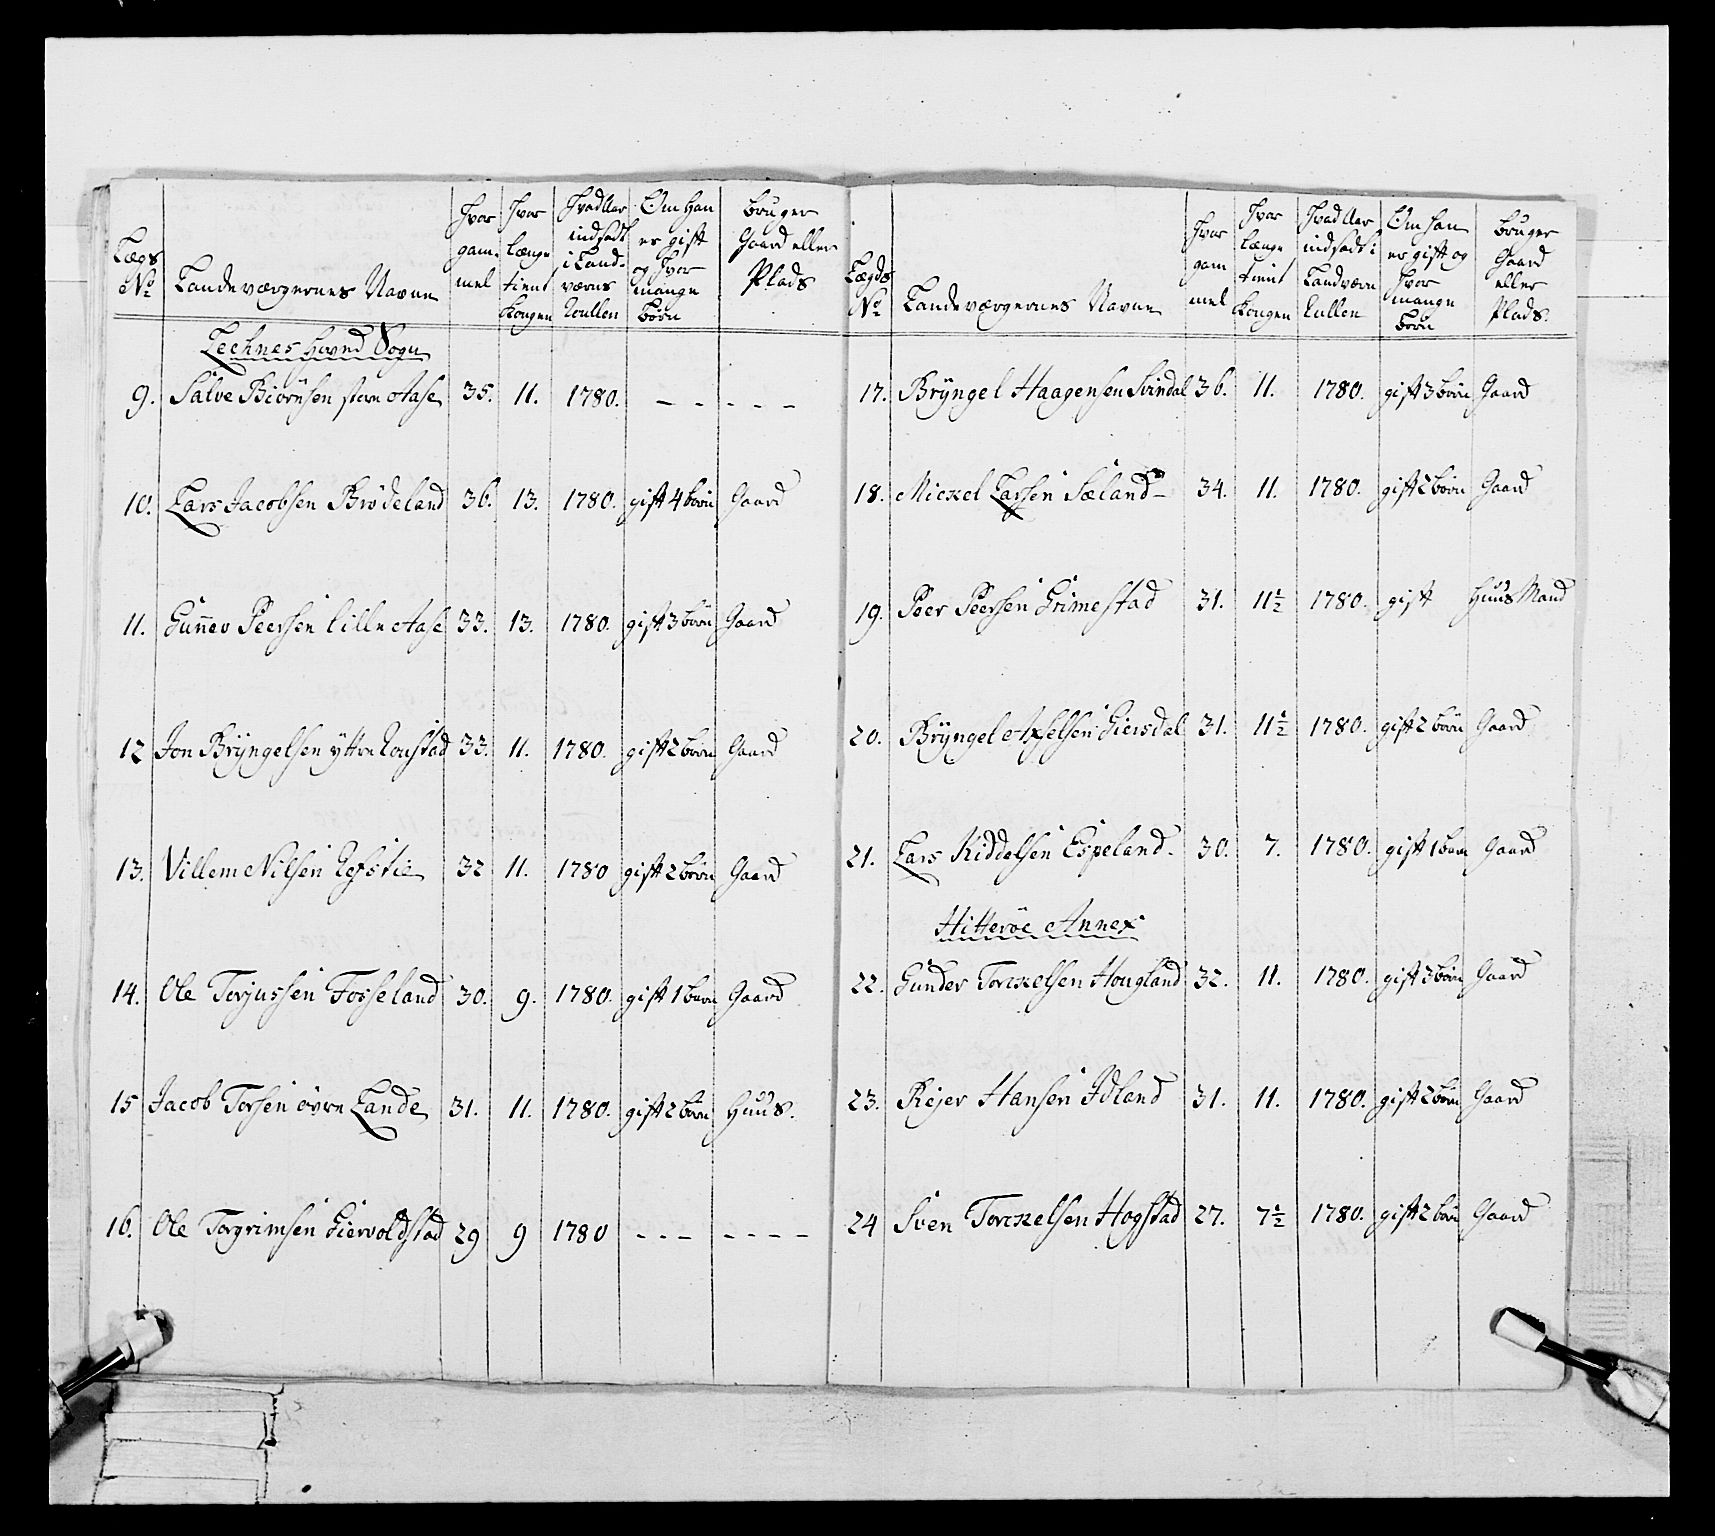 Lægs No
Landeværgernes Navne
Hvor gam- mel
Hvor længe tient Kongen
Hvad Aar indsadt i Land- værns Rullen
Om han er gift og hvor mange Børn
bruger Gaard eller Plads
Lechnes Hoved Sogn
9. Salve Biørnsen store Aase 35. 11. 1780. - - - - -
10. Lars Jacobsen Brødeland 36. 13. 1780. gift 4 børn Gaard
11. Guñer Peersen lille Aase 33. 13. 1780. gift 3 börn Gaard
12 Jon Brÿngelsen ÿttre Roustad 33. 11. 1780. gift 2 børn Gaard
13. Villem Nilsen Refstie 32 11. 1780 gift 2 børn Gaard
14. Ole Torjussen Fosseland 30. 9. 1780. gift 1 barn Gaard
15 Jacob Torsen øvre Lande 31. 11. 1780. gift 2 børn Huus.
16. Ole Torgrimsen Giervoldstad 29 9 1780 - - - - - - -
Lægds No
Landeværgernes Navne
Hvor gam mel
Hvor længe tient Kongen
Hvad Aar indsadt i Landværn Rullen
Om han er gift og hvor mange Børn
bruger Gaard eller Plads.
17. Brÿngel Haagensen Svindal 36. 11. 1780. gift 3 børn Gaard
18. Mickel Larsen Sæland 34. 11. 1780. gift 2 børn Gaard
19. Peer Peersen Grimestad 31. 11½ 1780. gift Huus Mand
20. Brÿngel Axelsen Giersdal 31. 11½ 1780. gift 2 børn Gaard
21. Lars Kiddelsen Espeland. 30. 7. 1780. gift 1 barn Gaard
Hitterøe Annex
22. Gunder Torckelsen Hougland 32. 11. 1780. gift 3 børn Gaard
23. Rejer Hansen Idland 31. 11. 1780. gift 2 børn Gaard
24 Sven Torckelsen Hogstad 27. 7½ 1780. gift 2 børn Gaard